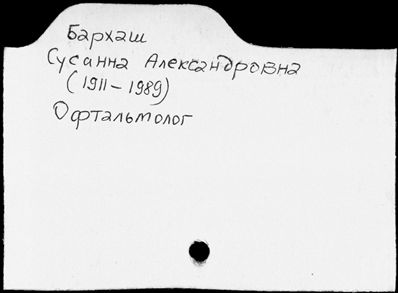 Бархаш
Сусанна Александровна
(1911 – 1989)
Офтальмолог